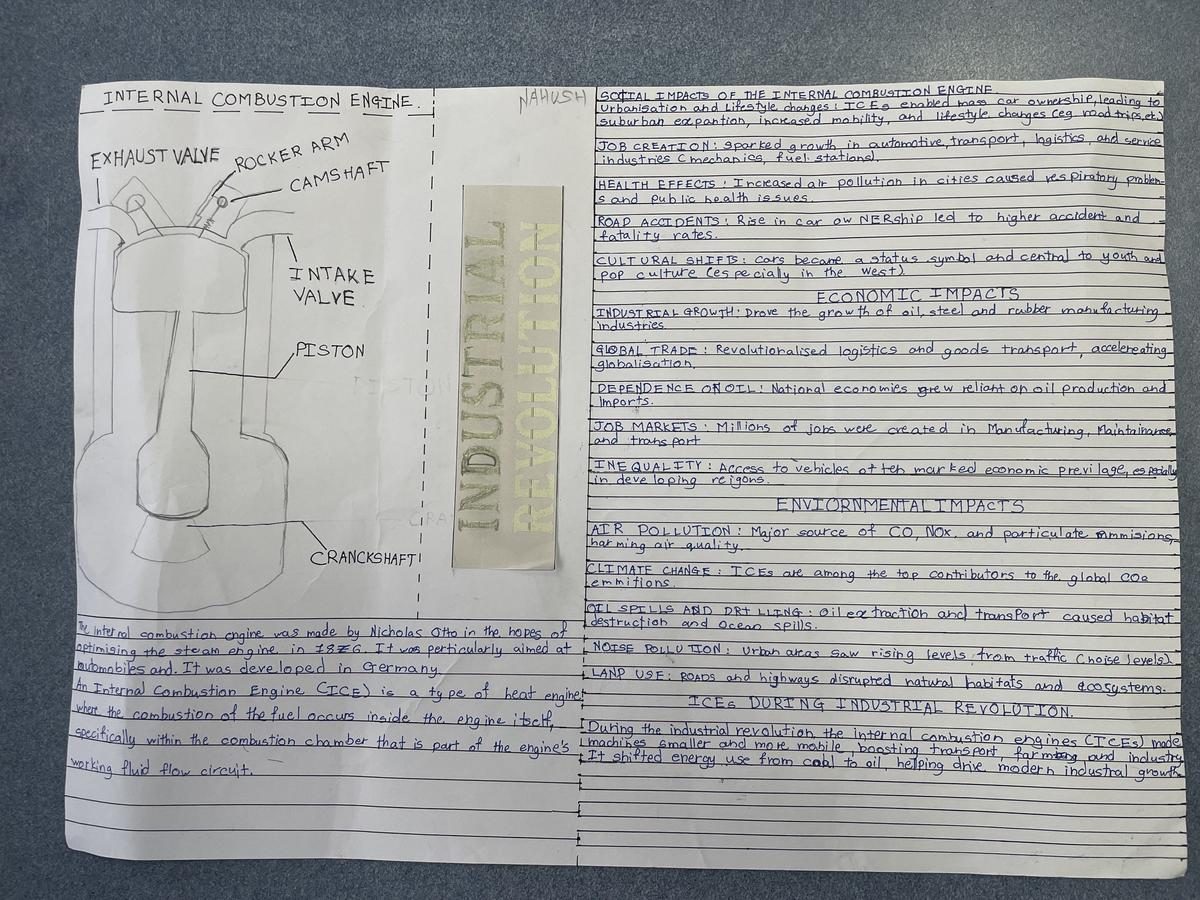 INTERNAL COMBUSTION ENGINE.
EXHAUST VALVE
ROCKER ARM
CAMSHAFT
INTAKE
VALVE
PISTON
CRANCKSHAFT
NAHUSH
INDUSTRIAL
REVOLUTION
The internal combustion engine was made by Nicholas Otto in the hopes of
optimising the steam engine in 1876. It was perticularly aimed at
automobiles and. It was developed in Germany.
An Internal Combustion Engine (ICE) is a type of heat engine
where the combustion of the fuel occurs inside the engine itself,
specifically within the combustion chamber that is part of the engine's
working fluid flow circuit.
SOCIAL IMPACTS OF THE INTERNAL COMBUSTION ENGINE.
Urbanisation and Lifestyle changes: ICEs enabled mass car ownership, leading to
suburban expantion, increased mobility, and lifestyle changes (eg. road trips, etc.)
JOB CREATION: Sparked growth in automotive, transport, logistics, and service
industries (mechanics, fuel stations).
HEALTH EFFECTS: Increased air pollution in cities caused respiratory problem-
s and public health issues.
ROAD ACCIDENTS: Rise in car owNERship led to higher accident and
fatality rates.
CULTURAL SHIFTS: Cars became a status symbol and central to youth and
pop culture (especially in the west)
ECONOMIC IMPACTS
INDUSTRIAL GROWTH: Drove the growth of oil, steel and rubber manufacturing
industries.
GLOBAL TRADE: Revolutionalised logistics and goods transport, accelereating
globalisation.
DEPENDENCE ON OIL: National economies grew reliant on oil production and
Imports.
JOB MARKETS: Millions of jobs were created in Manufacturing, Maintainance
and transport
INEQUALITY: Access to vehicles often marked economic previlage, especially
in developing reigons.
ENVIORNMENTAL IMPACTS
AIR POLLUTION: Major source of CO, NOx, and particulate emmisions,
harming air quality.
CLIMATE CHANGE: ICEs are among the top contributors to the global CO2
emmitions.
OIL SPILLS AND DRILLING: Oil extraction and transport caused habitat
destruction and Ocean spills.
NOISE POLLUTION: Urban areas saw rising levels from traffic (noise levels).
LAND USE: ROADS and highways disrupted natural habitats and ecosystems.
ICEs DURING INDUSTRIAL REVOLUTION.
During the industrial revolution, the Internal combustion engines (ICEs) made
machines smaller and more mobile, boosting transport, farming and industry
It shifted energy use from coal to oil, helping drive modern industral growth.